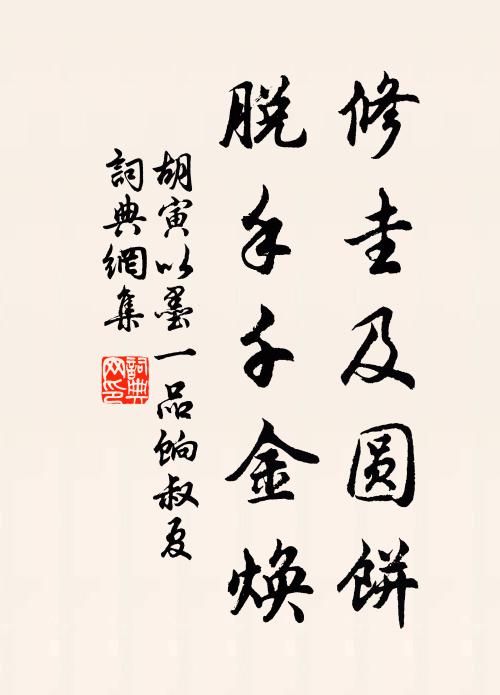 修圭及圆餅
脱手千金焕
胡寅以墨一品餉叔夏
詞典網集
詞典網印